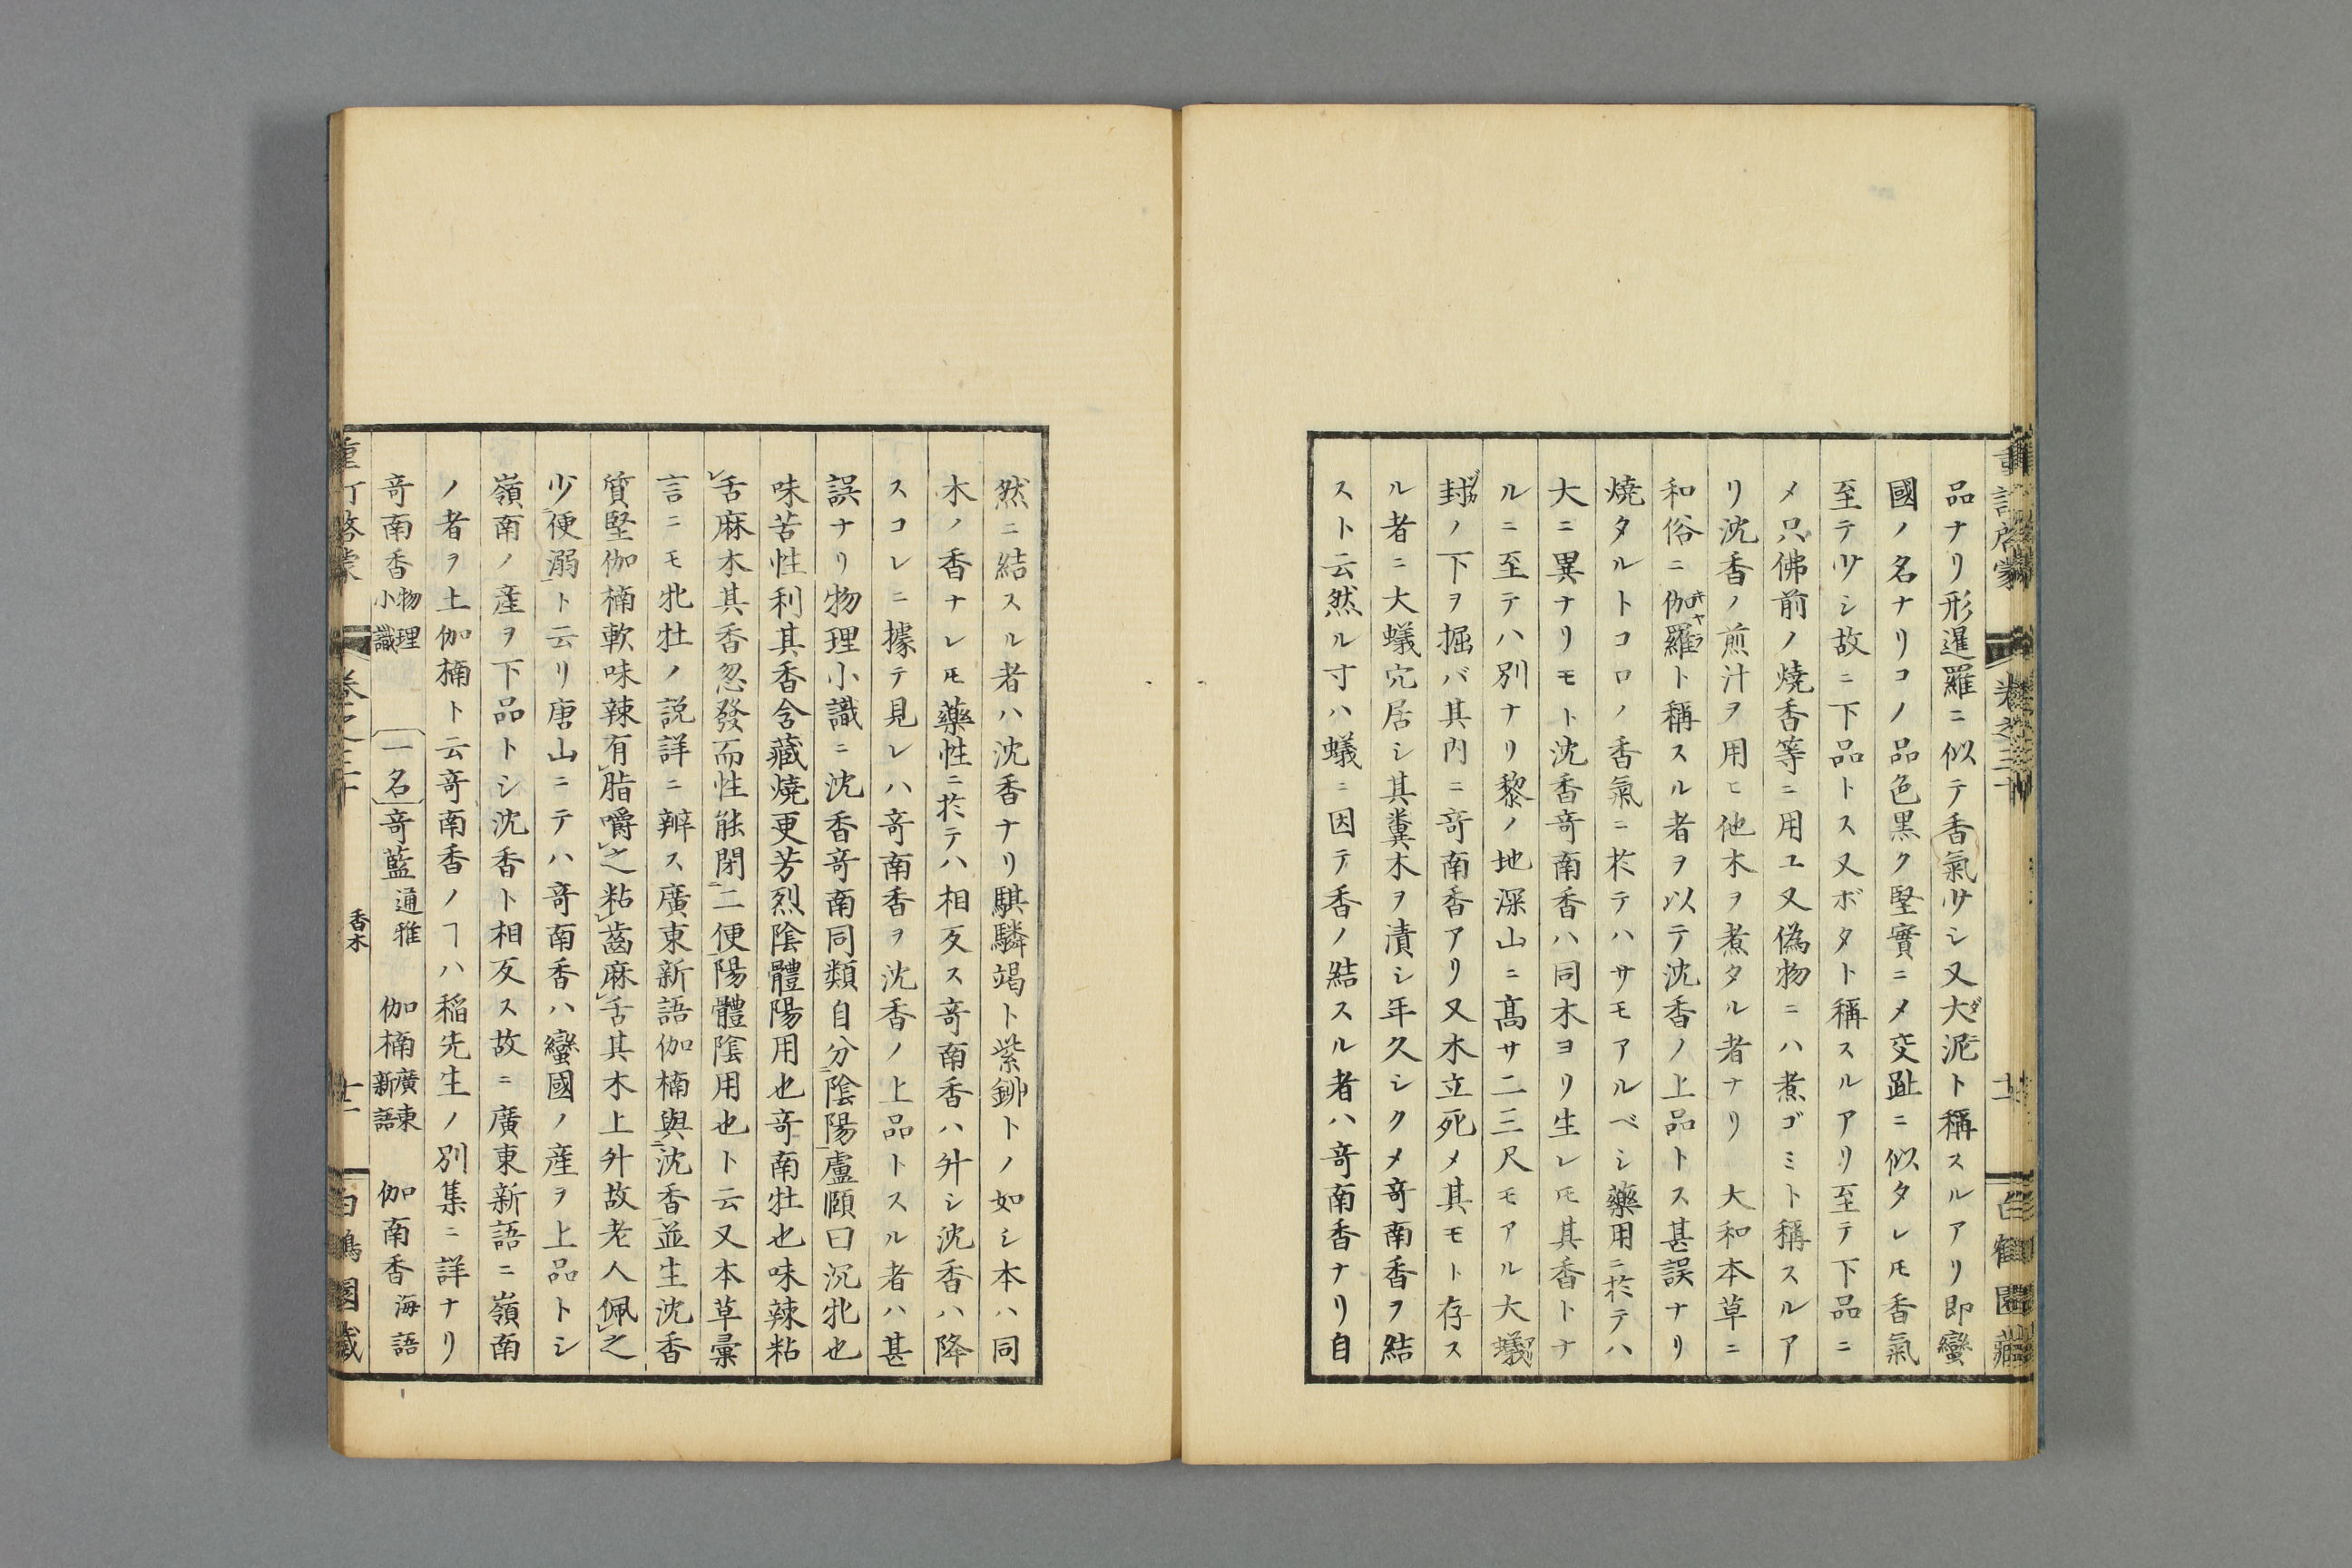 品ナリ形暹羅ニ似テ香氣少シ又大泥ト稱スルアリ即蠻
國ノ名ナリコノ品色黒ク堅實ニメ交趾ニ似タレ𪜈香氣
至テ少シ故ニ下品トス又ボタト稱スルアリ至テ下品ニ
メ只佛前ノ燒香等ニ用ユ又偽物ニハ煮ゴミト稱スルア
リ沈香ノ煎汁ヲ用ヒ他木ヲ煮タル者ナリ 大和本草ニ
和俗ニ伽羅ト稱スル者ヲ以テ沈香ノ上品トス甚誤ナリ
燒タルトコロノ香氣ニ於テハサモアルベシ藥用ニ於テハ
大ニ異ナリモト沈香竒南香ハ同木ヨリ生レ𪜈其香トナ
ルニ至テハ別ナリ黎ノ地深山ニ髙サ二三尺モアル大蟻
封ノ下ヲ掘バ其内ニ竒南香アリ又木立死メ其モト存ス
ル者ニ大蟻穴居シ其糞木ヲ漬シ年久シクメ竒南香ヲ結
スト云然ル寸ハ蟻ニ因テ香ノ結スル者ハ竒南香ナリ自
然ニ結スル者ハ沈香ナリ騏驎竭ト紫鉚トノ如シ本ハ同
木ノ香ナレ𪜈藥性ニ於テハ相反ス竒南香ハ升シ沈香ハ降
スコレニ據テ見レハ竒南香ヲ沈香ノ上品トスル者ハ甚
誤ナリ物理小識ニ沈香竒南同類自分陰陽盧頤曰沉牝也
味苦性利其香含藏燒更芳烈陰體陽用也竒南牡也味辣粘
舌麻木其香忽發而性能閉二便陽體陰用也ト云又本草彙
言ニモ牝牡ノ説詳ニ辨ス廣東新語伽楠與沈香並生沈香
質堅伽楠軟味辣有脂嚼之粘齒麻舌其木上升故老人佩之
少便溺ト云リ唐山ニテハ竒南香ハ蠻國ノ産ヲ上品トシ
嶺南ノ産ヲ下品トシ沈香ト相反ス故ニ廣東新語ニ嶺南
ノ者ヲ土伽楠ト云竒南香ノヿハ稲先生ノ別集ニ詳ナリ
竒南香物理小識 一名竒藍通雅 伽楠廣東新語 伽南香海語
香木